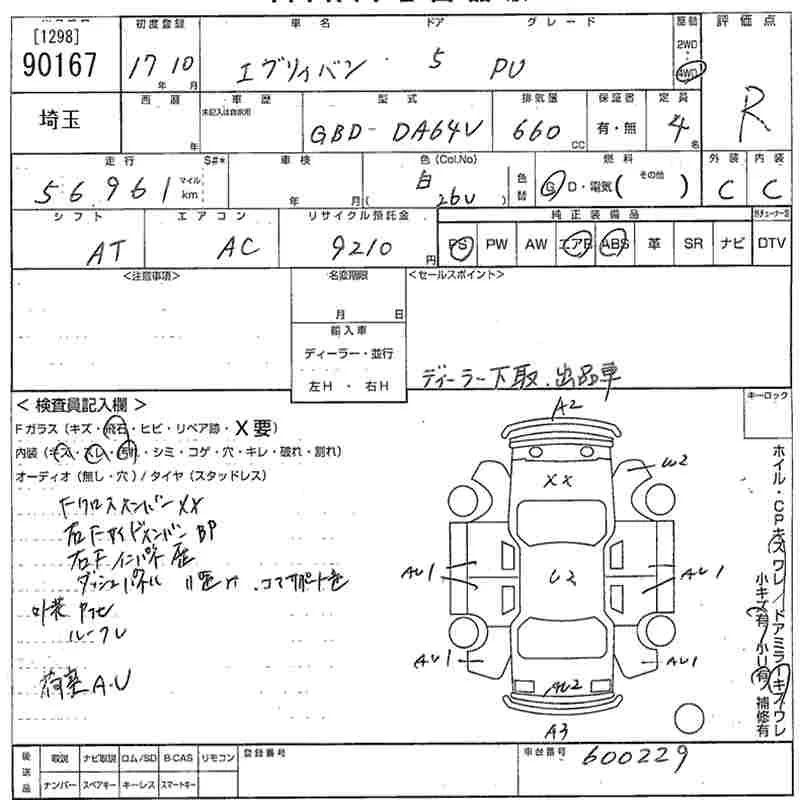 [1298]
90167
初度登録 車名 ドア グレード 駆動 評価点
17年 10月 エブリィバン 5 PU 2WD・4WD R
埼玉
西暦 年
車歴
未記入は自家用
型式 GBD-DA64V
排気量 660 CC
保証書 有・無
定員 4名
走行 56961 マイル km S#*
車検 年 月
色(Col.No) 白 (26U)
色替
燃料 G・D・電気( その他 )
外装 C 内装 C
シフト AT
エアコン AC
リサイクル預託金 9210円
純正装備品
PS PW AW エアB ABS 革 SR ナビ DTV
<注意事項> 名変期限 <セールスポイント>
月 日
輸入車
ディーラー・並行
左H・右H
ディーラー下取.出品車
<検査員記入欄>
Fガラス(キズ・飛石・ヒビ・リペア跡・X要)
内装(キズ・スレ・汚れ・シミ・コゲ・穴・キレ・破れ・割れ)
オーディオ(無し・穴)/タイヤ(スタッドレス)
FクロスメンバーXX
右FサイドメンバーBP
右Fインパネ歪
ダッシュパネル
コアサポート歪
外装
荷室A.U
キーロック
A2
W2
XX
AU1 U2 AU1
AU1 AU2 AU1
A3
ホイル・CPキズワレ/ドアミラーキズワレ
小キズ有/小U有/補修有
後送品 取説 ナビ取説 ロム/SD B-CAS リモコン
ナンバー スペアキー キーレス スマートキー
登録番号
車台番号 600229